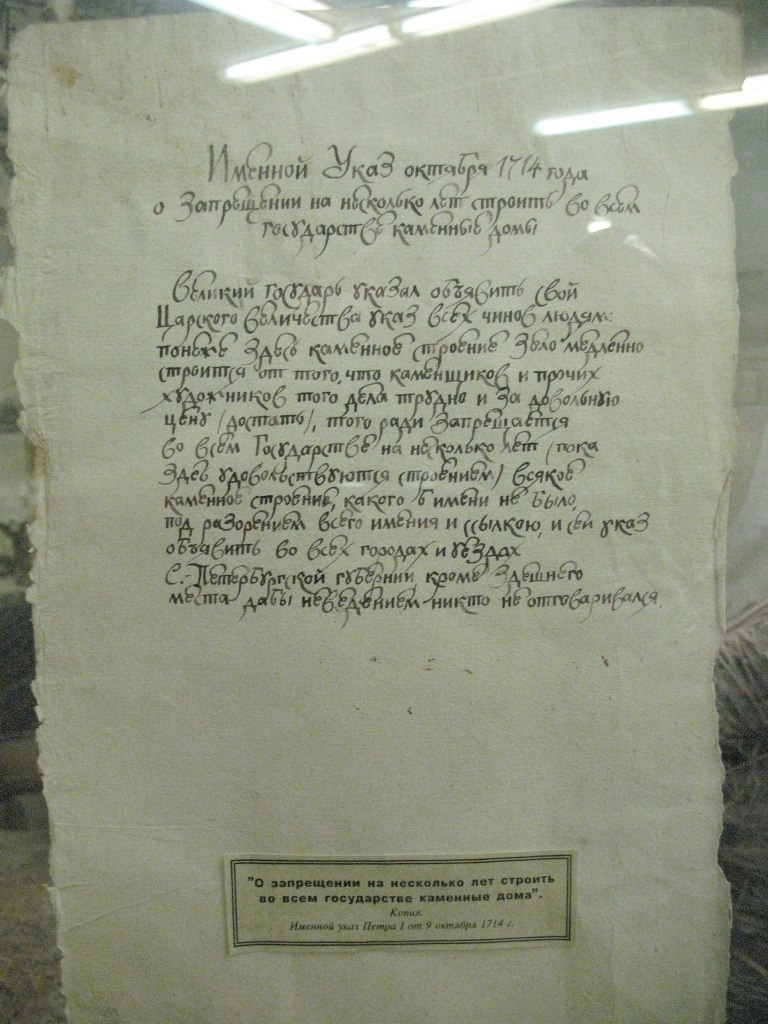 Именной Указ октября 1714 года
о Запрещении на несколько лет строить во всем
государстве каменные домы
Великий государь указал объявить свой
Царского величества указ всех чинов людям:
понеже здесь каменное строение зело медленно
строится от того, что каменщиков и прочих
художников того дела трудно и за довольную
цену (достать), того ради Запрещается
во всем Государстве на несколько лет (пока
здесь удовольствуются строением) всякое
каменное строение, какого б имени не было,
под разорением всего имения и ссылкою, и сей указ
объявить во всех городах и уездах
С.-Петербургской губернии, кроме здешнего
места дабы неведением никто не отговаривался.
"О запрещении на несколько лет строить
во всем государстве каменные дома".
Копия.
Именной указ Петра I от 9 октября 1714 г.